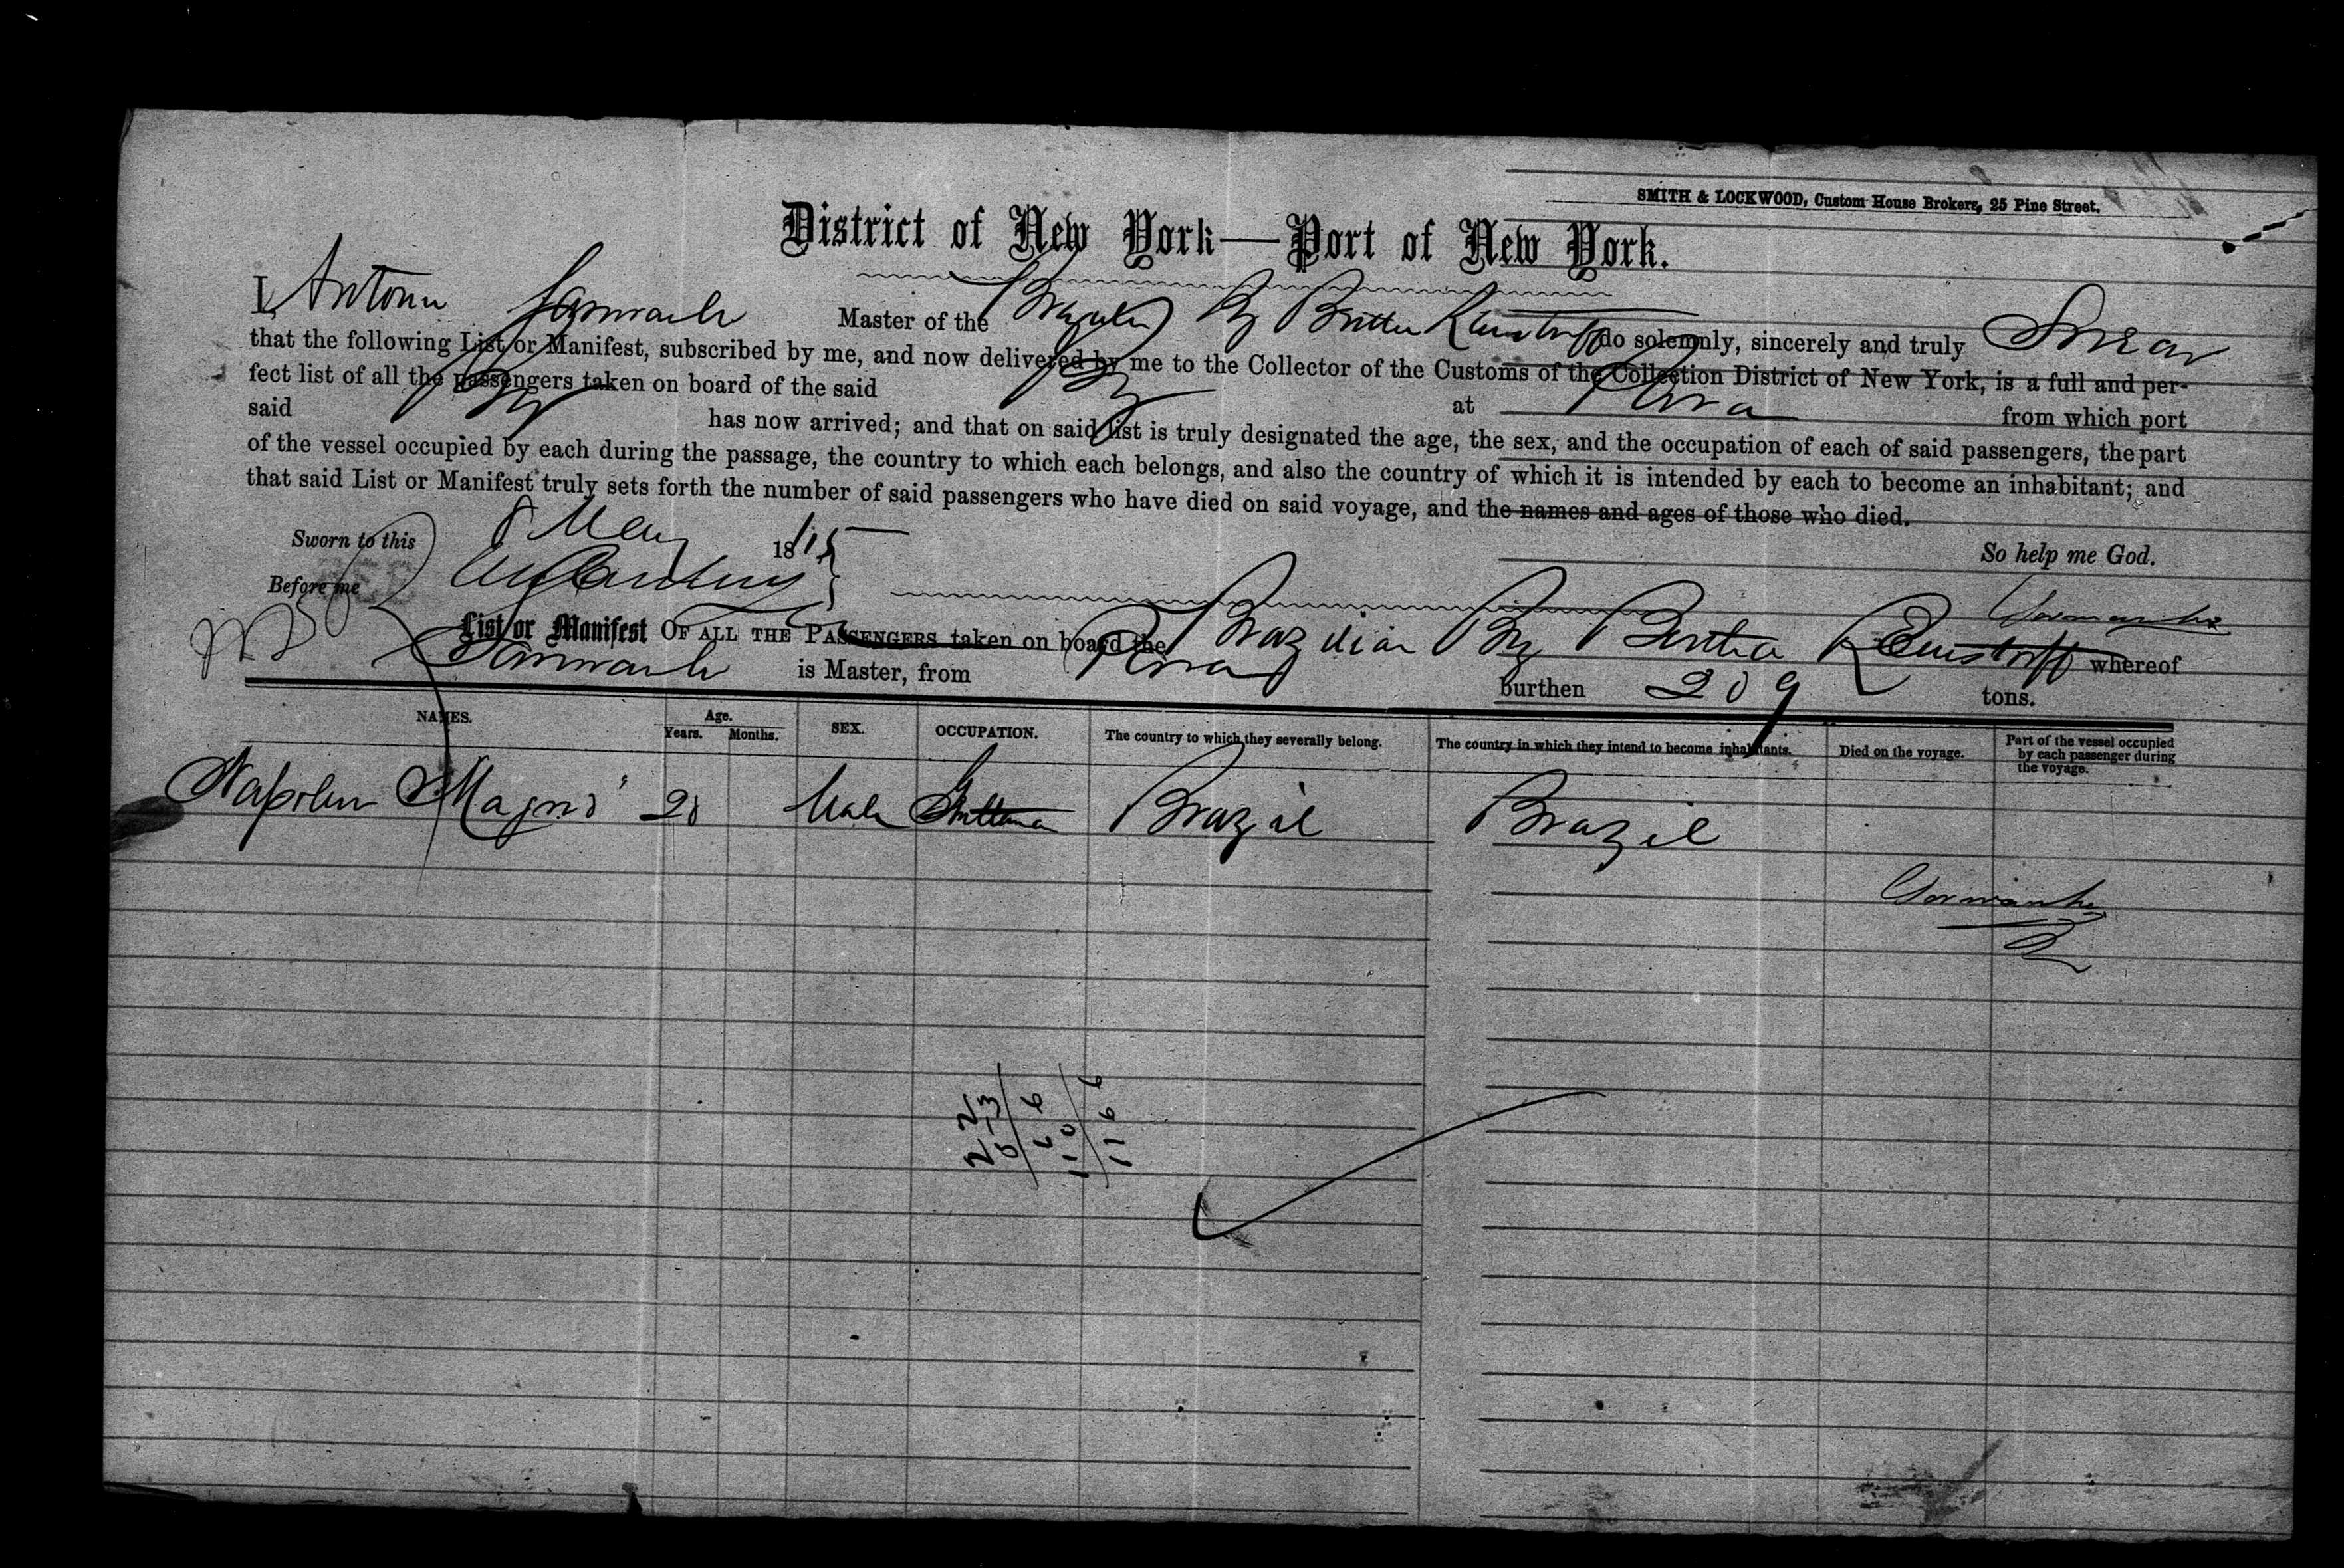 SMITH & LOCKWOOD, Custom House Brokers, 25 Pine Street.
District of New York—Port of New York.
I, Master of the Brazilian Bg do solemnly, sincerely and truly Swear
that the following List or Manifest, subscribed by me, and now delivered by me to the Collector of the Customs of the Collection District of New York, is a full and per-
fect list of all the passengers taken on board of the said Bg at Para from which port
said Bg has now arrived; and that on said list is truly designated the age, the sex, and the occupation of each of said passengers, the part
of the vessel occupied by each during the passage, the country to which each belongs, and also the country of which it is intended by each to become an inhabitant; and
that said List or Manifest truly sets forth the number of said passengers who have died on said voyage, and the names and ages of those who died.
Sworn to this 8 May 18
So help me God.
Before me
List or Manifest OF ALL THE PASSENGERS taken on board the Brazilian Bg whereof
is Master, from Para burthen 209 tons.
NAMES. Age. Years. Months. SEX. OCCUPATION. The country to which they severally belong. The country in which they intend to become inhabitants. Died on the voyage. Part of the vessel occupied by each passenger during the voyage.
Magno 28 Male Brazil Brazil